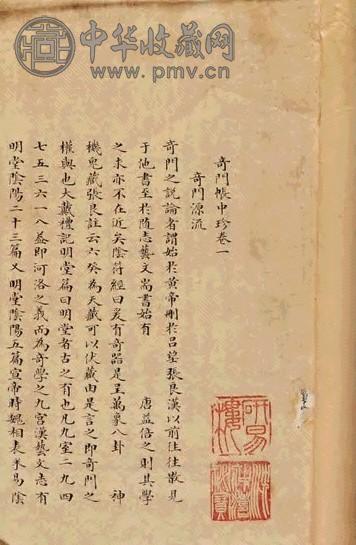 中华收藏网
www.pmv.cn
奇門帳中珍卷一
奇門源流
奇門之說論者謂始於黃帝刪於呂望張良漢以前往往散見
于他書至於隋志藝文尚書始有 唐益倍之則其學
之來亦不在近矣陰符經曰爰有奇器是呈萬象八卦 神
機鬼藏張良註云六癸為天藏可以伏藏由是言之即奇門之
權輿也大戴禮記明堂篇曰明堂者古之有也凡九室二九四
七五三六一八益即河洛之義而為奇學之九宮漢藝文志有
明堂陰陽三十三篇又明堂陰陽五篇宣帝時魏相表采易陰
研易樓